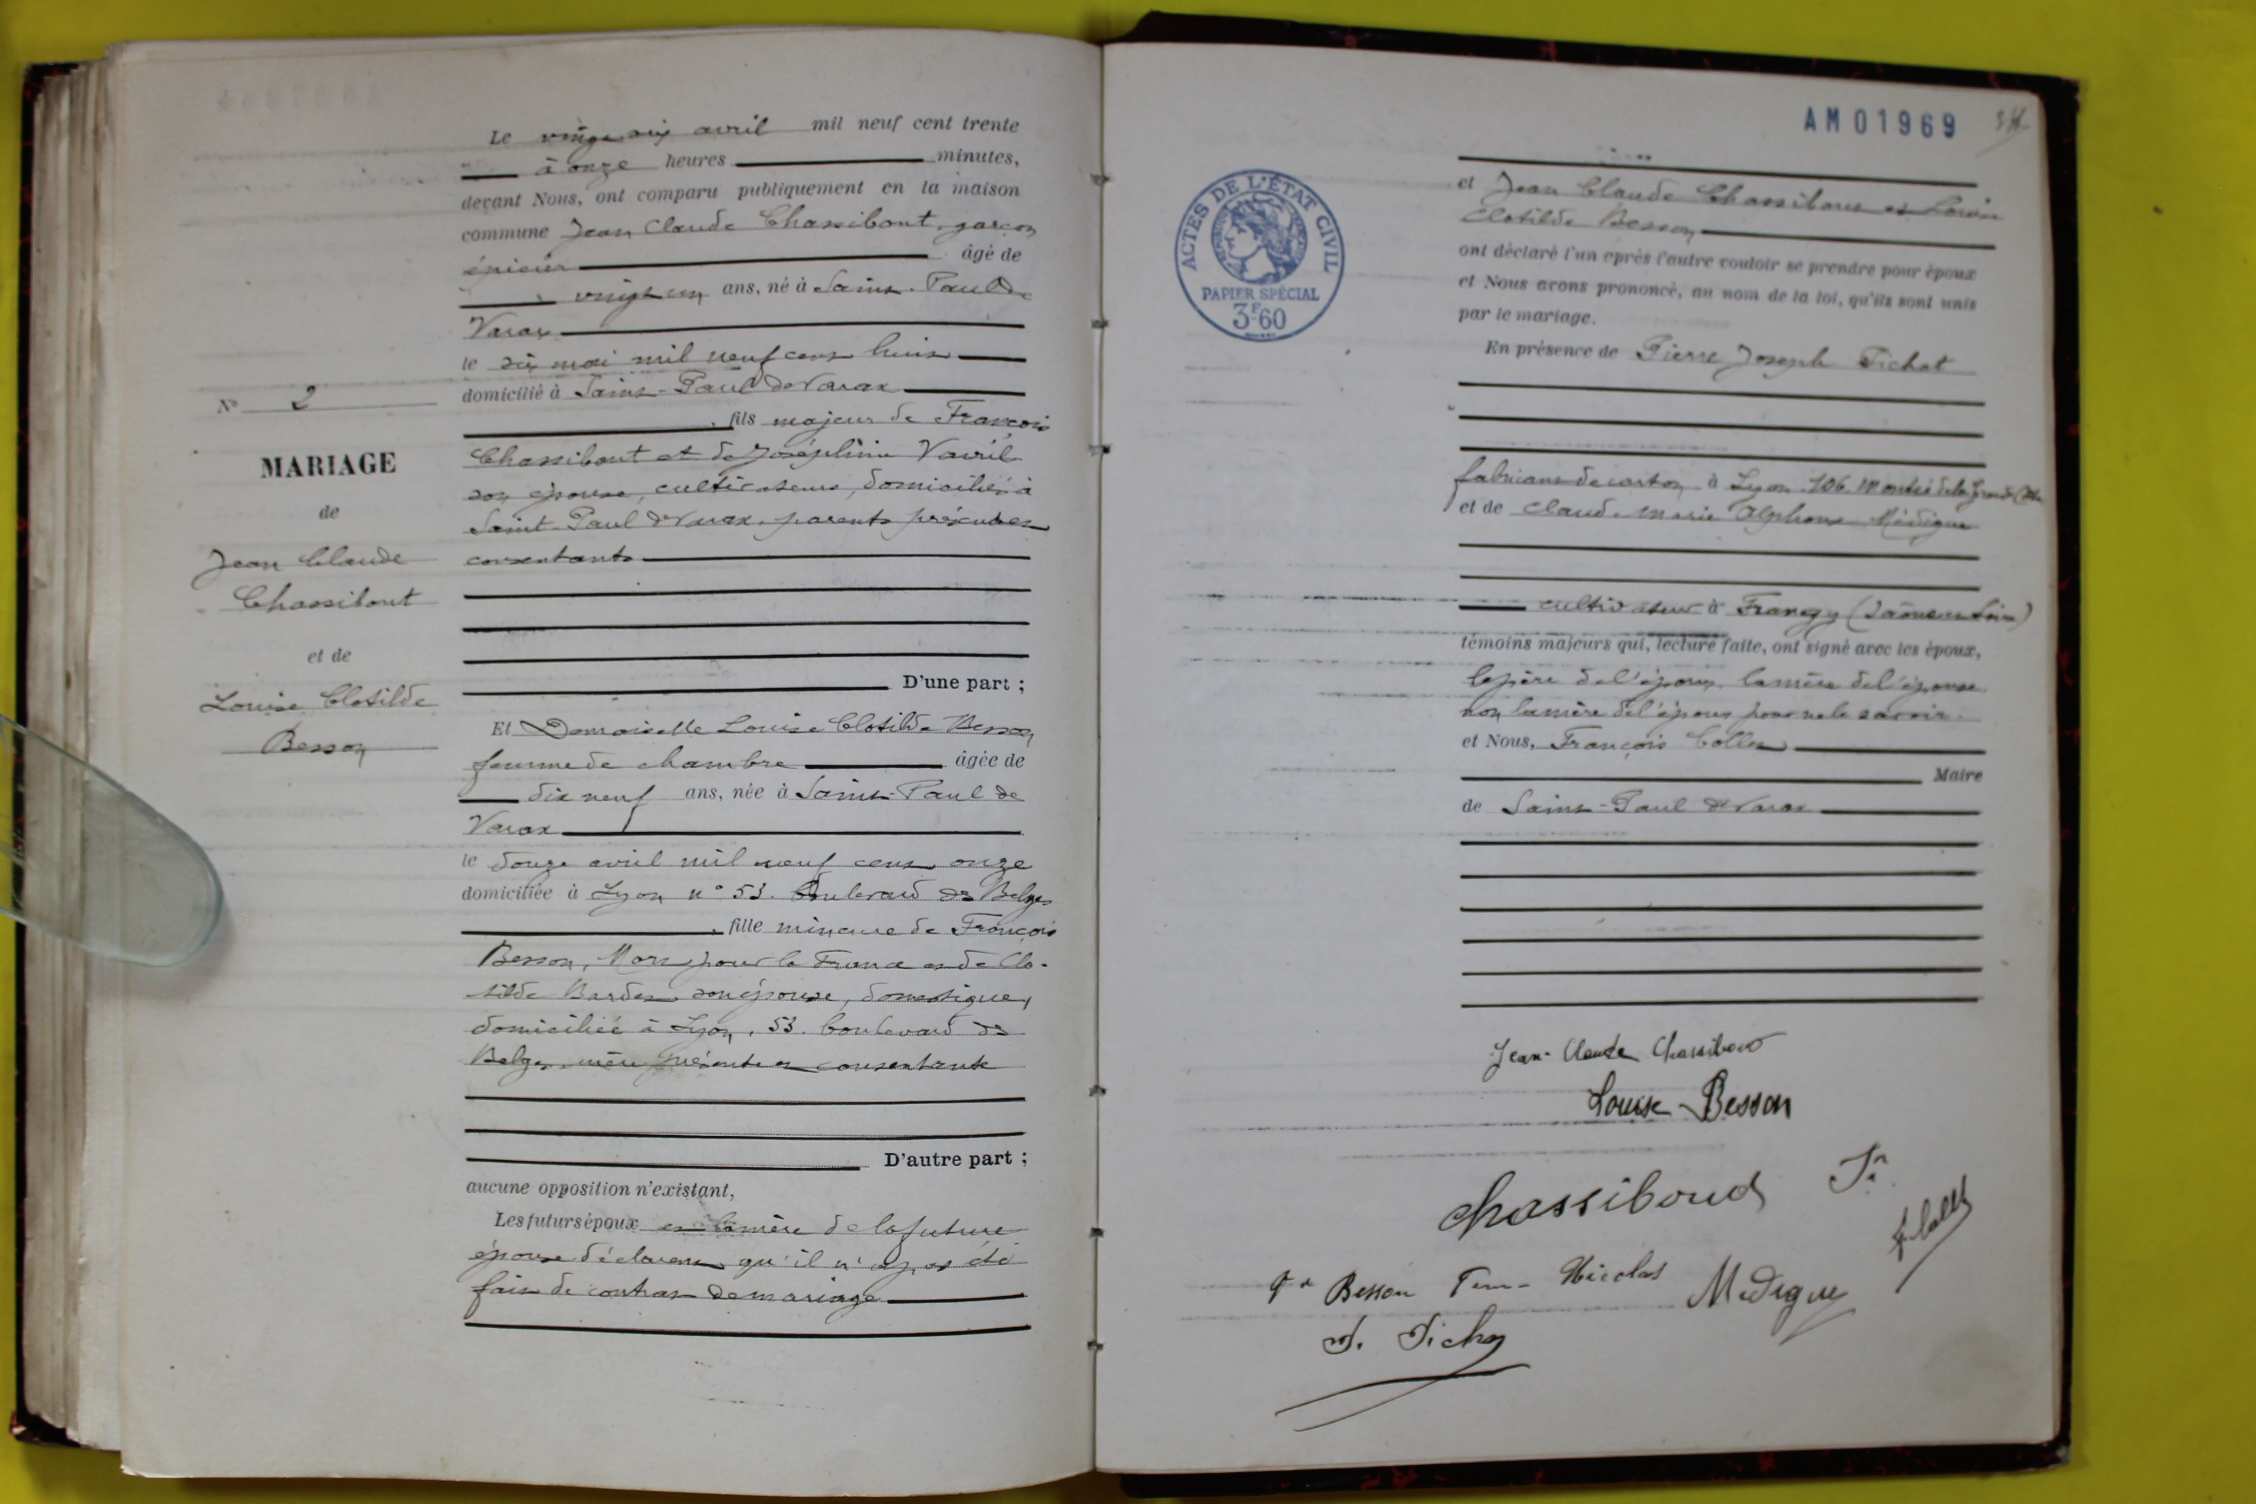 Le vingt six avril mil neuf cent trente
à onze heures minutes,
devant Nous, ont comparu publiquement en la maison
commune Jean Claude Chassibout, garçon
épicier âgé de
vingt un ans, né à Saint-Paul de
Varax
le six mai mil neuf cent huit
domicilié à Saint-Paul de Varax
, fils majeur de François
Chassibout et de Joséphine Vavril
son épouse, cultivateurs, domiciliés à
Saint-Paul de Varax, parents présents et
consentants
D'une part ;
Et Demoiselle Louise Clotilde Besson
femme de chambre âgée de
dix neuf ans, née à Saint-Paul de
Varax
le douze avril mil neuf cent onze
domiciliée à Lyon n° 53. Boulevard des Belges
, fille mineure de François
Besson, Mort pour la France et de Clo-
tilde Bardet son épouse, domestique,
domiciliée à Lyon, 53. boulevard des
Belges, mère présente et consentante
D'autre part ;
aucune opposition n'existant,
Les futurs époux et la mère de la future
épouse déclarent qu'il n'a pas été
fait de contrat de mariage
N° 2
MARIAGE
de
Jean Claude
Chassibout
et de
Louise Clotilde
Besson
AM01969
ACTES DE L'ÉTAT CIVIL
PAPIER SPÉCIAL
3F60
et Jean Claude Chassibout et Louise
Clotilde Besson
ont déclaré l'un après l'autre vouloir se prendre pour époux
et Nous avons prononcé, au nom de la loi, qu'ils sont unis
par le mariage.
En présence de Pierre Joseph Tichet
fabricant de carton à Lyon 106 Montée de la Grande Côte
et de Claude Marie Alphonse Médigue
cultivateur à Frangy (Saône et Loire)
témoins majeurs qui, lecture faite, ont signé avec les époux,
le père de l'époux, la mère de l'épouse
non la mère de l'époux pour ne le savoir.
et Nous, François Collet
Maire
de Saint-Paul de Varax
Jean-Claude Chassiboud
Louise Besson
Chassiboud Fr
F. Collet
Vve Besson Fem- Nicolas Medigue